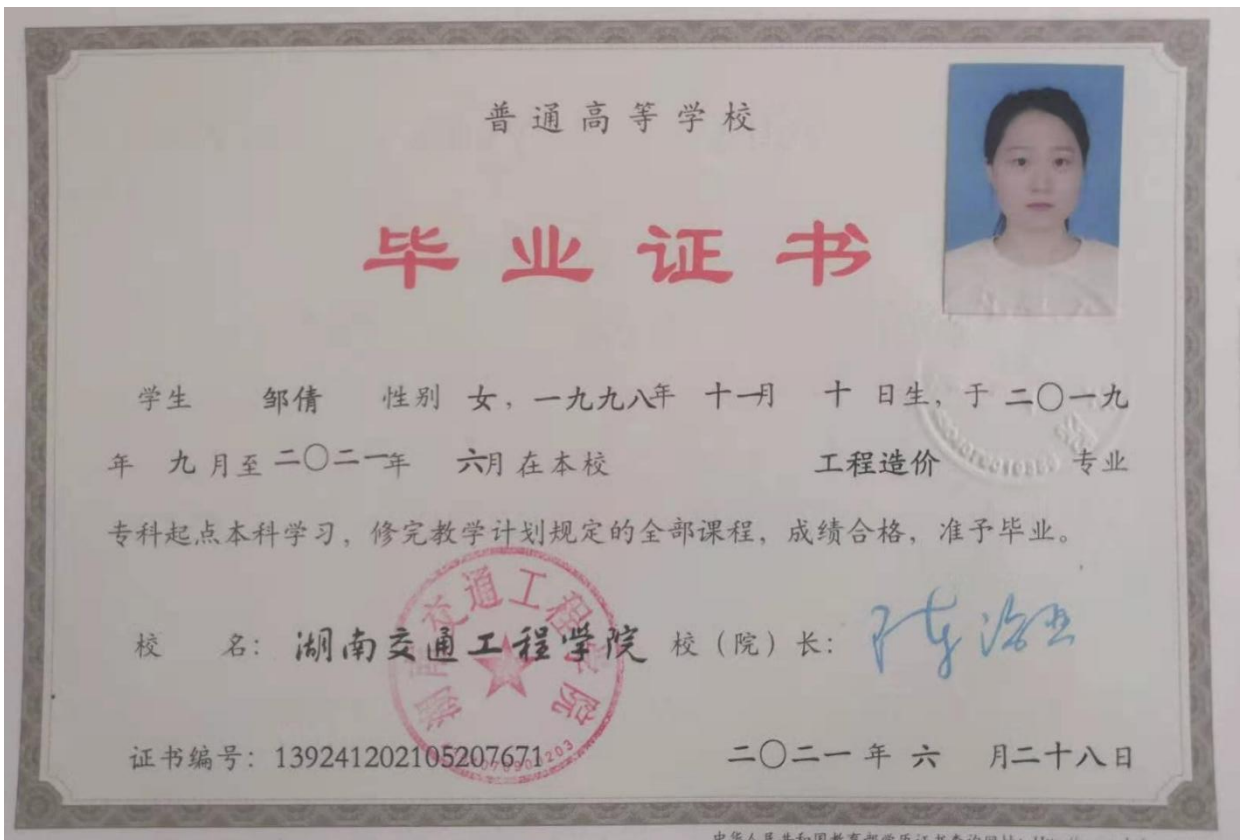 普通高等学校
毕业证书
学生 邹倩 性别 女，一九九八年 十一月 十 日生，于 二〇一九
年 九 月至 二〇二一年 六月在本校 工程造价 专业
专科起点本科学习，修完教学计划规定的全部课程，成绩合格，准予毕业。
校 名：湖南交通工程学院 校（院）长：
湖南交通工程学院
证书编号：139241202105207671 二〇二一 年 六 月二十八日